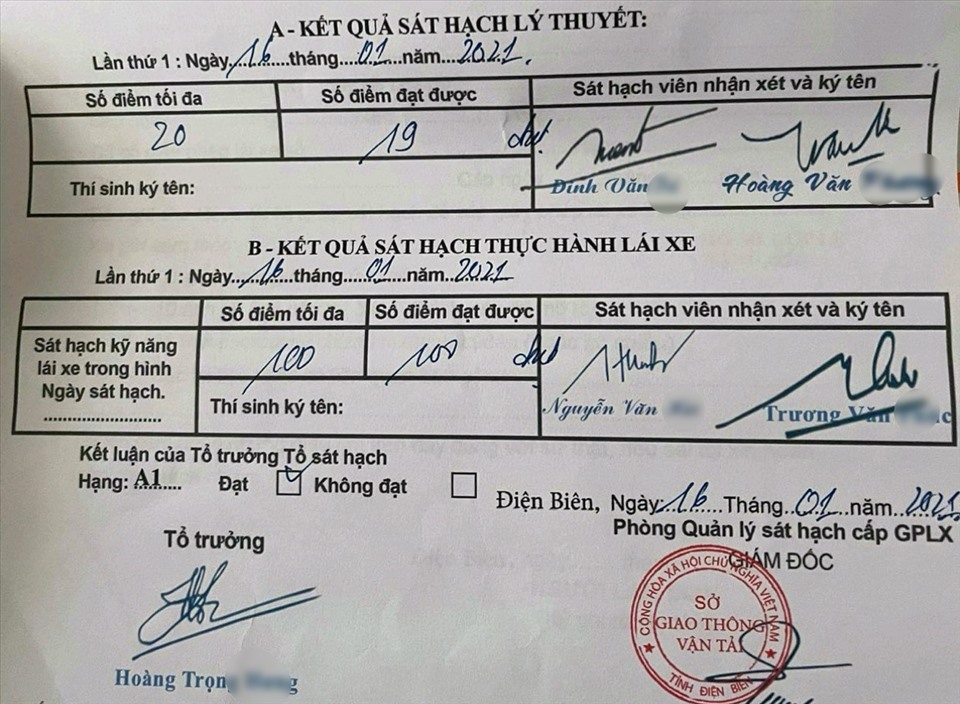 A - KẾT QUẢ SÁT HẠCH LÝ THUYẾT:
Lần thứ 1 : Ngày 16 tháng 01 năm 2021.
Số điểm tối đa Số điểm đạt được Sát hạch viên nhận xét và ký tên
20 19
Thí sinh ký tên: Đinh Văn Hoàng Văn
B - KẾT QUẢ SÁT HẠCH THỰC HÀNH LÁI XE
Lần thứ 1 : Ngày 16 tháng 01 năm 2021
Số điểm tối đa Số điểm đạt được Sát hạch viên nhận xét và ký tên
Sát hạch kỹ năng
lái xe trong hình
Ngày sát hạch.
100 100
Thí sinh ký tên: Nguyễn Văn Trương Văn
Kết luận của Tổ trưởng Tổ sát hạch
Hạng: A1 Đạt Không đạt
Điện Biên, Ngày 16 Tháng 01 năm 2021
Phòng Quản lý sát hạch cấp GPLX
GIÁM ĐỐC
Tổ trưởng
Hoàng Trọng
CỘNG HÒA XÃ HỘI CHỦ NGHĨA VIỆT NAM
SỞ
GIAO THÔNG
VẬN TẢI
TỈNH ĐIỆN BIÊN